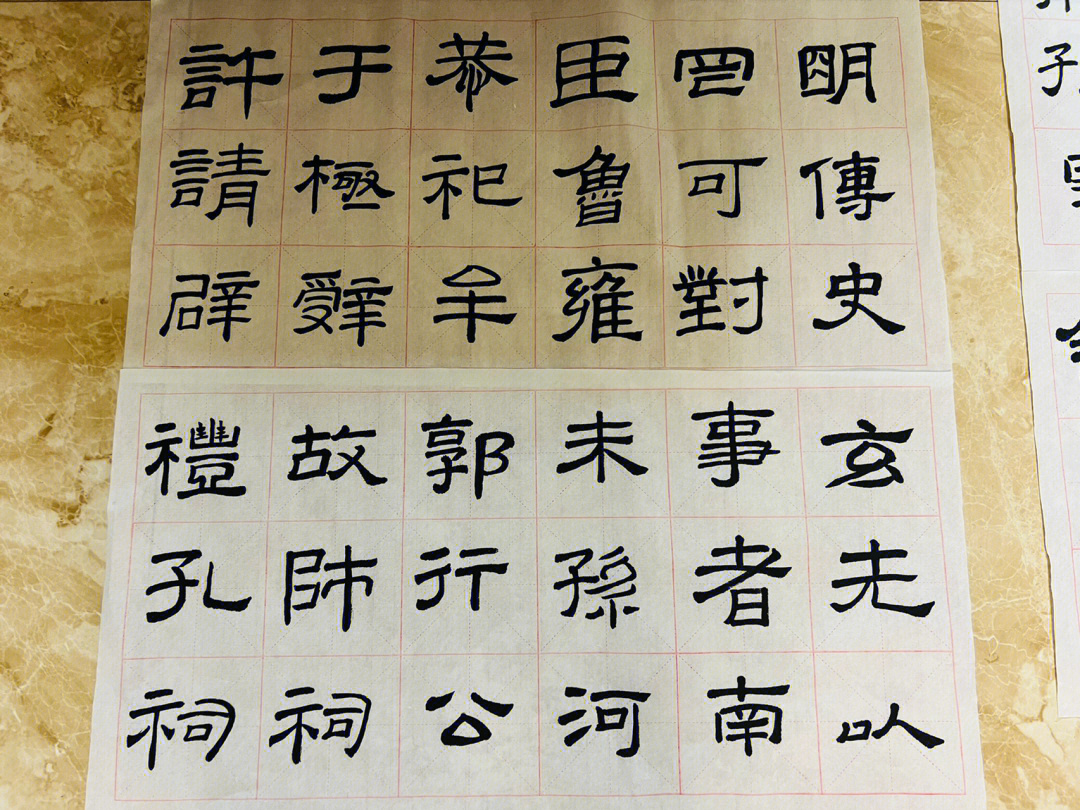 明傳史
可對
臣魯雍
恭祀牟
于極辤
許請辟
玄先以
事者南
未孫河
郭行公
故師祠
禮孔祠
孔